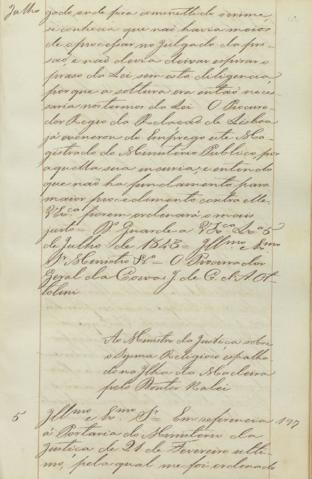 Julho
gado onde fora commettido o crime,
e conhecia que não havia meios
de o processar no Julgado da pri-
são, e não devia deixar espirar o
praso da Lei sem esta diligencia,
porque a soltura era então neces-
saria nos termos da Lei O Procura-
dor Regio da Relação de Lisboa
já exonerou do Emprego este Ma-
gistrado do Ministerio Publico, por
aquella sua incuria; e entendo
que não ha fundamento para
maior procedimento contra elle
V Exca porem ordenará o mais
justo = Ds Guarde a V Exca Lxa 5
de Julho de 1843 = Illmo e Exmo
Sr Ministro = O Procurador
Geral da Coroa J. de C. N. A. Ot-
tolini
Ao Ministro da Justiça sobre
o Sysma Religioso espalha-
do na Ilha da Madeira
pelo Doutor Kalei
5 Illmo e Exmo Sr = Em referencia 177
á Portaria do Ministerio da
Justiça de 21 de Fevereiro ulti-
mo, pela qual me foi ordenado